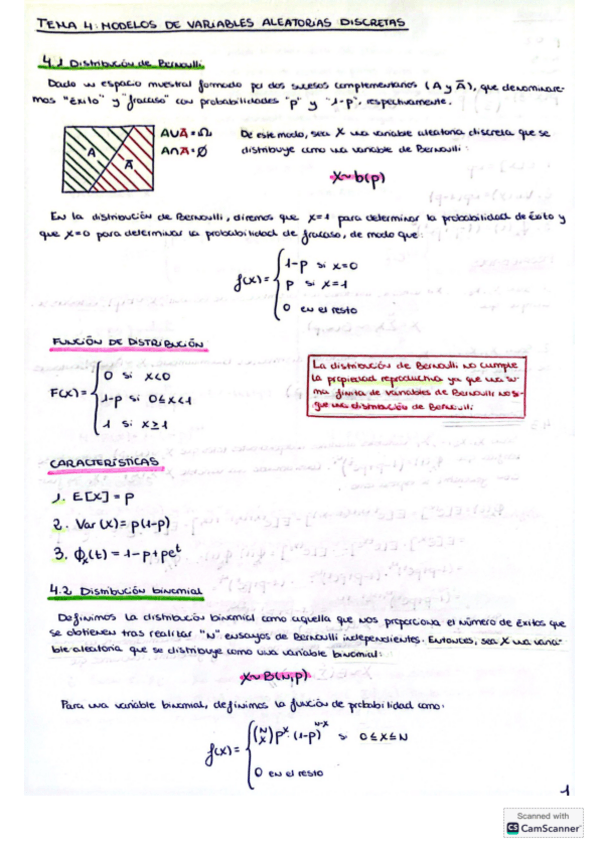 TEMA 4: MODELOS DE VARIABLES ALEATORIAS DISCRETAS
4.1 Distribución de Bernoulli
Dado un espacio muestral formado por dos sucesos complementarios (A y A̅), que denominare-
mos "éxito" y "fracaso" con probabilidades "p" y "1-p", respectivamente.
A
A̅
A∪A̅=Ω
A∩A̅=Ø
De este modo, sea X una variable aleatoria discreta que se
distribuye como una variable de Bernoulli:
X~b(p)
En la distribución de Bernoulli, diremos que x=1 para determinar la probabilidad de éxito y
que x=0 para determinar la probabilidad de fracaso, de modo que:
f(x)= { 1-p si x=0
p si x=1
0 en el resto
FUNCIÓN DE DISTRIBUCIÓN
F(x)= { 0 si x<0
1-p si 0≤x<1
1 si x≥1
La distribución de Bernoulli no cumple
la propiedad reproductiva ya que una su-
ma finita de variables de Bernoulli no si-
gue una distribución de Bernoulli
CARACTERÍSTICAS
1. E[X]=p
2. Var(X)=p(1-p)
3. ϕₓ(t)=1-p+peᵗ
4.2 Distribución binomial
Definimos la distribución binomial como aquella que nos proporciona el número de éxitos que
se obtienen tras realizar "N" ensayos de Bernoulli independientes. Entonces, sea X una varia-
ble aleatoria que se distribuye como una variable binomial:
X~B(N,p)
Para una variable binomial, definimos la función de probabilidad como:
f(x)= { (N x) pˣ·(1-p)ᴺ⁻ˣ si 0≤X≤N
0 en el resto
1
Scanned with
CS CamScanner